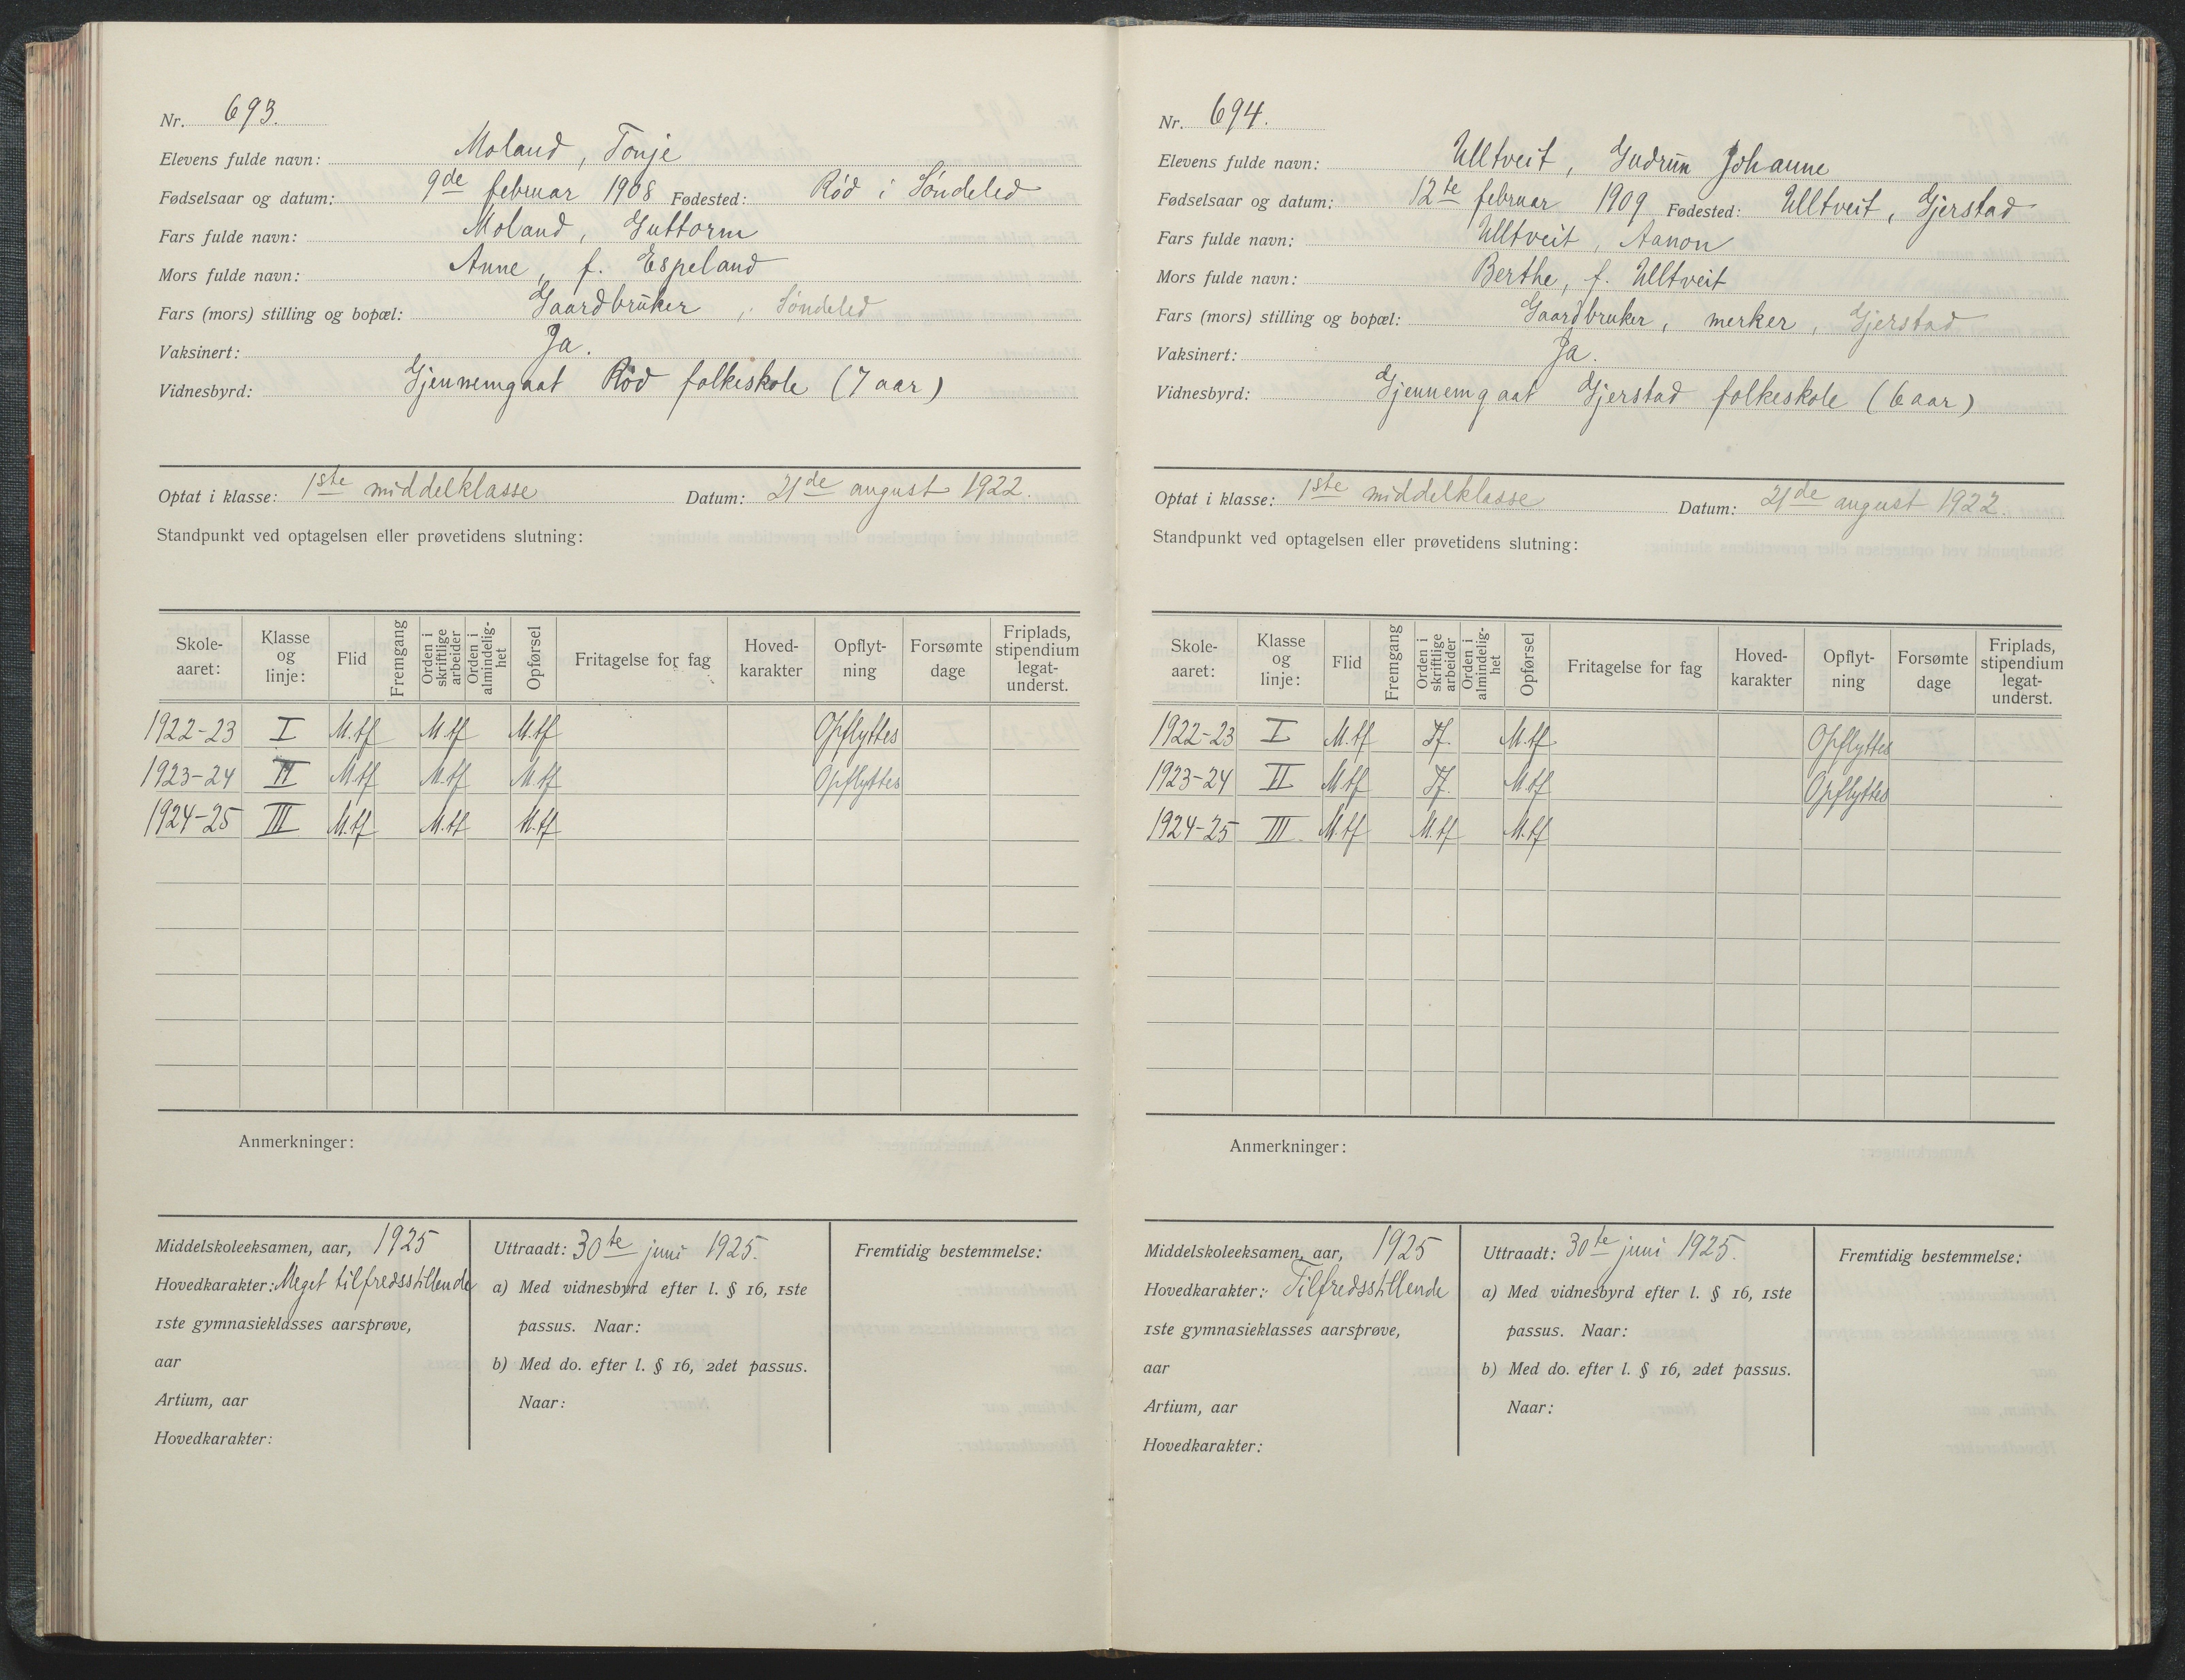 Nr. 693.
Elevens fulde navn: Moland, Tonje
Fødselsaar og datum: 9de februar 1908 Fødested: Rød i Søndeled
Fars fulde navn: Moland, Guttorm
Mors fulde navn: Anne, f. Espeland
Fars (mors) stilling og bopæl: Gaardbruker, Søndeled
Vaksinert: Ja.
Vidnesbyrd: Gjennemgaat Rød folkeskole (7 aar)
Optat i klasse: 1ste middelklasse Datum: 21de august 1922.
Standpunkt ved optagelsen eller prøvetidens slutning:
Skole-aaret: Klasse og linje: Flid Fremgang Orden i skriftlige arbeider Orden i almindelig-het Opførsel Fritagelse for fag Hoved-karakter Opflyt-ning Forsømte dage Friplads, stipendium legat-underst.
1922-23 I M.tf M.tf M.tf Opflyttes
1923-24 II M.tf M.tf M.tf Opflyttes
1924-25 III M.tf M.tf M.tf
Anmerkninger:
Middelskoleeksamen, aar, 1925
Hovedkarakter: Meget tilfredsstillende
1ste gymnasieklasses aarsprøve,
aar
Artium, aar
Hovedkarakter:
Uttraadt: 30te juni 1925.
a) Med vidnesbyrd efter l. § 16, 1ste
passus. Naar:
b) Med do. efter l. § 16, 2det passus.
Naar:
Fremtidig bestemmelse:
Nr. 694.
Elevens fulde navn: Ulltveit, Gudrun Johanne
Fødselsaar og datum: 12te februar 1909 Fødested: Ulltveit, Gjerstad
Fars fulde navn: Ulltveit, Aanon
Mors fulde navn: Berthe, f. Ulltveit
Fars (mors) stilling og bopæl: Gaardbruker, merker, Gjerstad
Vaksinert: Ja.
Vidnesbyrd: Gjennemgaat Gjerstad folkeskole (6 aar)
Optat i klasse: 1ste middelklasse Datum: 21de august 1922.
Standpunkt ved optagelsen eller prøvetidens slutning:
Skole-aaret: Klasse og linje: Flid Fremgang Orden i skriftlige arbeider Orden i almindelig-het Opførsel Fritagelse for fag Hoved-karakter Opflyt-ning Forsømte dage Friplads, stipendium legat-underst.
1922-23 I M.tf Tf. M.tf Opflyttes
1923-24 II M.tf Tf. M.tf Opflyttes
1924-25 III M.tf M.tf M.tf
Anmerkninger:
Middelskoleeksamen, aar, 1925
Hovedkarakter: Tilfredsstillende
1ste gymnasieklasses aarsprøve,
aar
Artium, aar
Hovedkarakter:
Uttraadt: 30te juni 1925.
a) Med vidnesbyrd efter l. § 16, 1ste
passus. Naar:
b) Med do. efter l. § 16, 2det passus.
Naar:
Fremtidig bestemmelse: